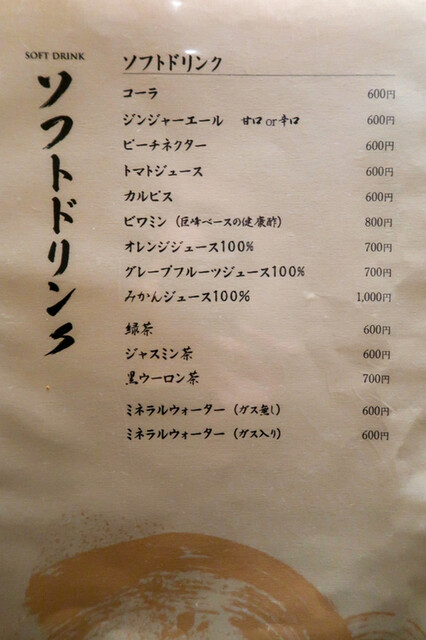 SOFT DRINK
ソフトドリンク
ソフトドリンク
コーラ 600円
ジンジャーエール 甘口or辛口 600円
ピーチネクター 600円
トマトジュース 600円
カルピス 600円
ビワミン（巨峰ベースの健康酢） 800円
オレンジジュース100% 700円
グレープフルーツジュース100% 700円
みかんジュース100% 1,000円
緑茶 600円
ジャスミン茶 600円
黒ウーロン茶 700円
ミネラルウォーター（ガス無し） 600円
ミネラルウォーター（ガス入り） 600円